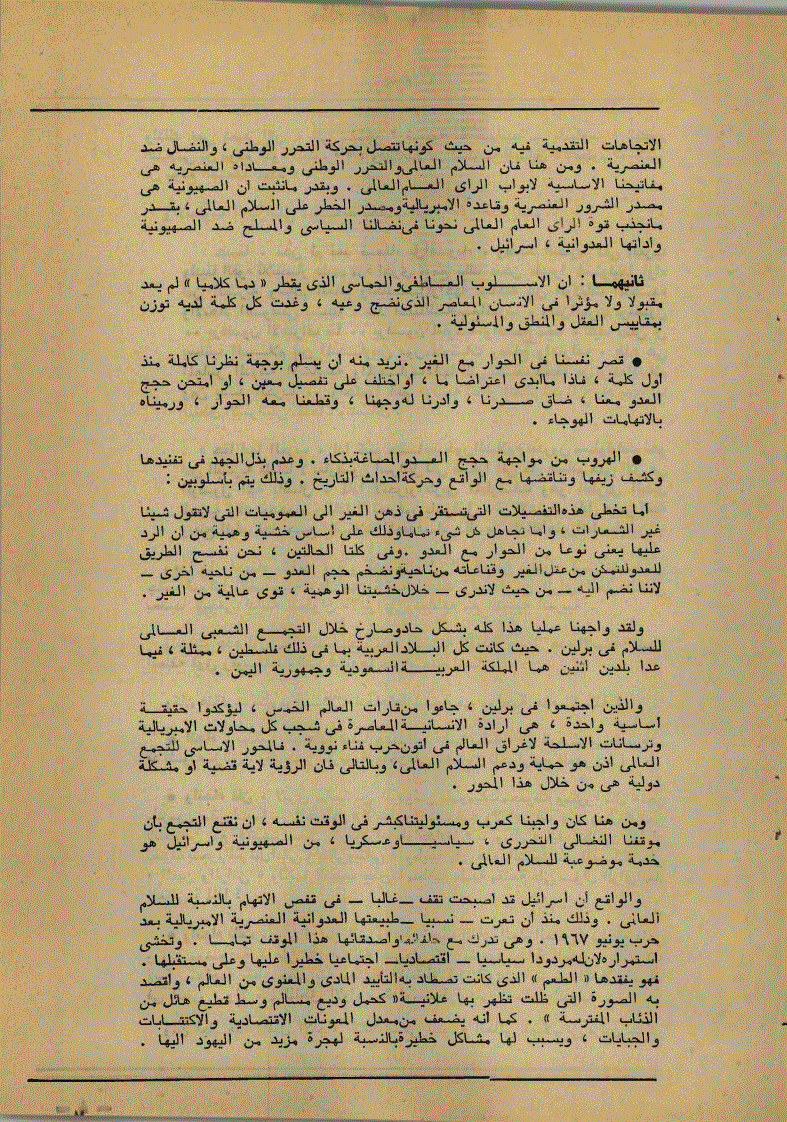 الاتجاهات التقدمية فيه من حيث كونها تتصل بحركة التحرر الوطنى ، والنضال ضد
العنصرية . ومن هنا فان السلام العالمى والتحرر الوطنى ومعاداة العنصريه هى
مفاتيحنا الاساسيه لابواب الراى العام العالمى . وبقدر مانثبت ان الصهيونية هى
مصدر الشرور العنصرية وقاعده الامبريالية ومصدر الخطر على السلام العالمى ، بقدر
مانجذب قوة الراى العام العالمى نحونا فى نضالنا السياسى والمسلح ضد الصهيونية
واداتها العدوانية ، اسرائيل .
ثانيهما : ان الاسلوب العاطفى والحماسى الذى يقطر « دما كلاميا » لم يعد
مقبولا ولا مؤثرا فى الانسان المعاصر الذى نضج وعيه ، وغدت كل كلمة لديه توزن
بمقاييس العقل والمنطق والمسئولية .
● قصر نفسنا فى الحوار مع الغير . نريد منه ان يسلم بوجهة نظرنا كاملة منذ
أول كلمة ، فاذا ماابدى اعتراضا ما ، او اختلف على تفصيل معين ، او امتحن حجج
العدو معنا ، ضاق صدرنا ، وادرنا له وجهنا ، وقطعنا معه الحوار ، ورميناه
بالاتهامات الهوجاء .
● الهروب من مواجهة حجج العدو المصاغة بذكاء . وعدم بذل الجهد فى تفنيدها
وكشف زيفها وتناقضها مع الواقع وحركة احداث التاريخ . وذلك يتم بأسلوبين :
أما تخطى هذه التفصيلات التى تستقر فى ذهن الغير الى العموميات التى لاتقول شيئا
غير الشعارات ، واما تجاهل كل شىء تماما وذلك على أساس خشية وهمية من ان الرد
عليها يعنى نوعا من الحوار مع العدو . وفى كلتا الحالتين ، نحن نفسح الطريق
للعدو للتمكن من عقل الغير وقناعاته من ناحية ونضخم حجم العدو — من ناحيه اخرى —
لاننا نضم اليه — من حيث لاندرى — خلال خشيتنا الوهمية ، قوى عالمية من الغير .
ولقد واجهنا عمليا هذا كله بشكل حاد وصارخ خلال التجمع الشعبى العالمى
للسلام فى برلين . حيث كانت كل البلاد العربية بما فى ذلك فلسطين ، ممثلة ، فيما
عدا بلدين اثنين هما المملكة العربية السعودية وجمهورية اليمن .
والذين اجتمعوا فى برلين ، جاءوا من قارات العالم الخمس ، ليؤكدوا حقيقة
أساسية واحدة ، هى ارادة الانسانية المعاصرة فى شجب كل محاولات الامبريالية
وترسانات الاسلحة لاغراق العالم فى أتون حرب فناء نووية . فالمحور الاساسى للتجمع
العالمى اذن هو حماية ودعم السلام العالمى ، وبالتالى فان الرؤية لاية قضية او مشكلة
دولية هى من خلال هذا المحور .
ومن هنا كان واجبنا كعرب ومسئوليتنا كبشر فى الوقت نفسه ، ان نقنع التجمع بأن
موقفنا النضالى التحررى ، سياسيا وعسكريا ، من الصهيونية واسرائيل هو
خدمة موضوعية للسلام العالمى .
والواقع أن اسرائيل قد اصبحت تقف — غالبا — فى قفص الاتهام بالنسبة للسلام
العالمى . وذلك منذ أن تعرت — نسبيا — طبيعتها العدوانية العنصرية الامبريالية بعد
حرب يونيو ١٩٦٧ . وهى تدرك مع حلفائها وأصدقائها هذا الموقف تماما . وتخشى
استمراره لان له مردودا سياسيا — اقتصاديا — اجتماعيا خطيرا عليها وعلى مستقبلها .
فهو يفقدها « الطعم » الذى كانت تصطاد به التأييد المادى والمعنوى من العالم ، وأقصد
به الصورة التى ظلت تظهر بها علانية « كحمل وديع مسالم وسط قطيع هائل من
الذئاب المفترسة » . كما أنه يضعف من معدل المعونات الاقتصادية والاكتتابات
والجبايات ، ويسبب لها مشاكل خطيرة بالنسبة لهجرة مزيد من اليهود اليها .